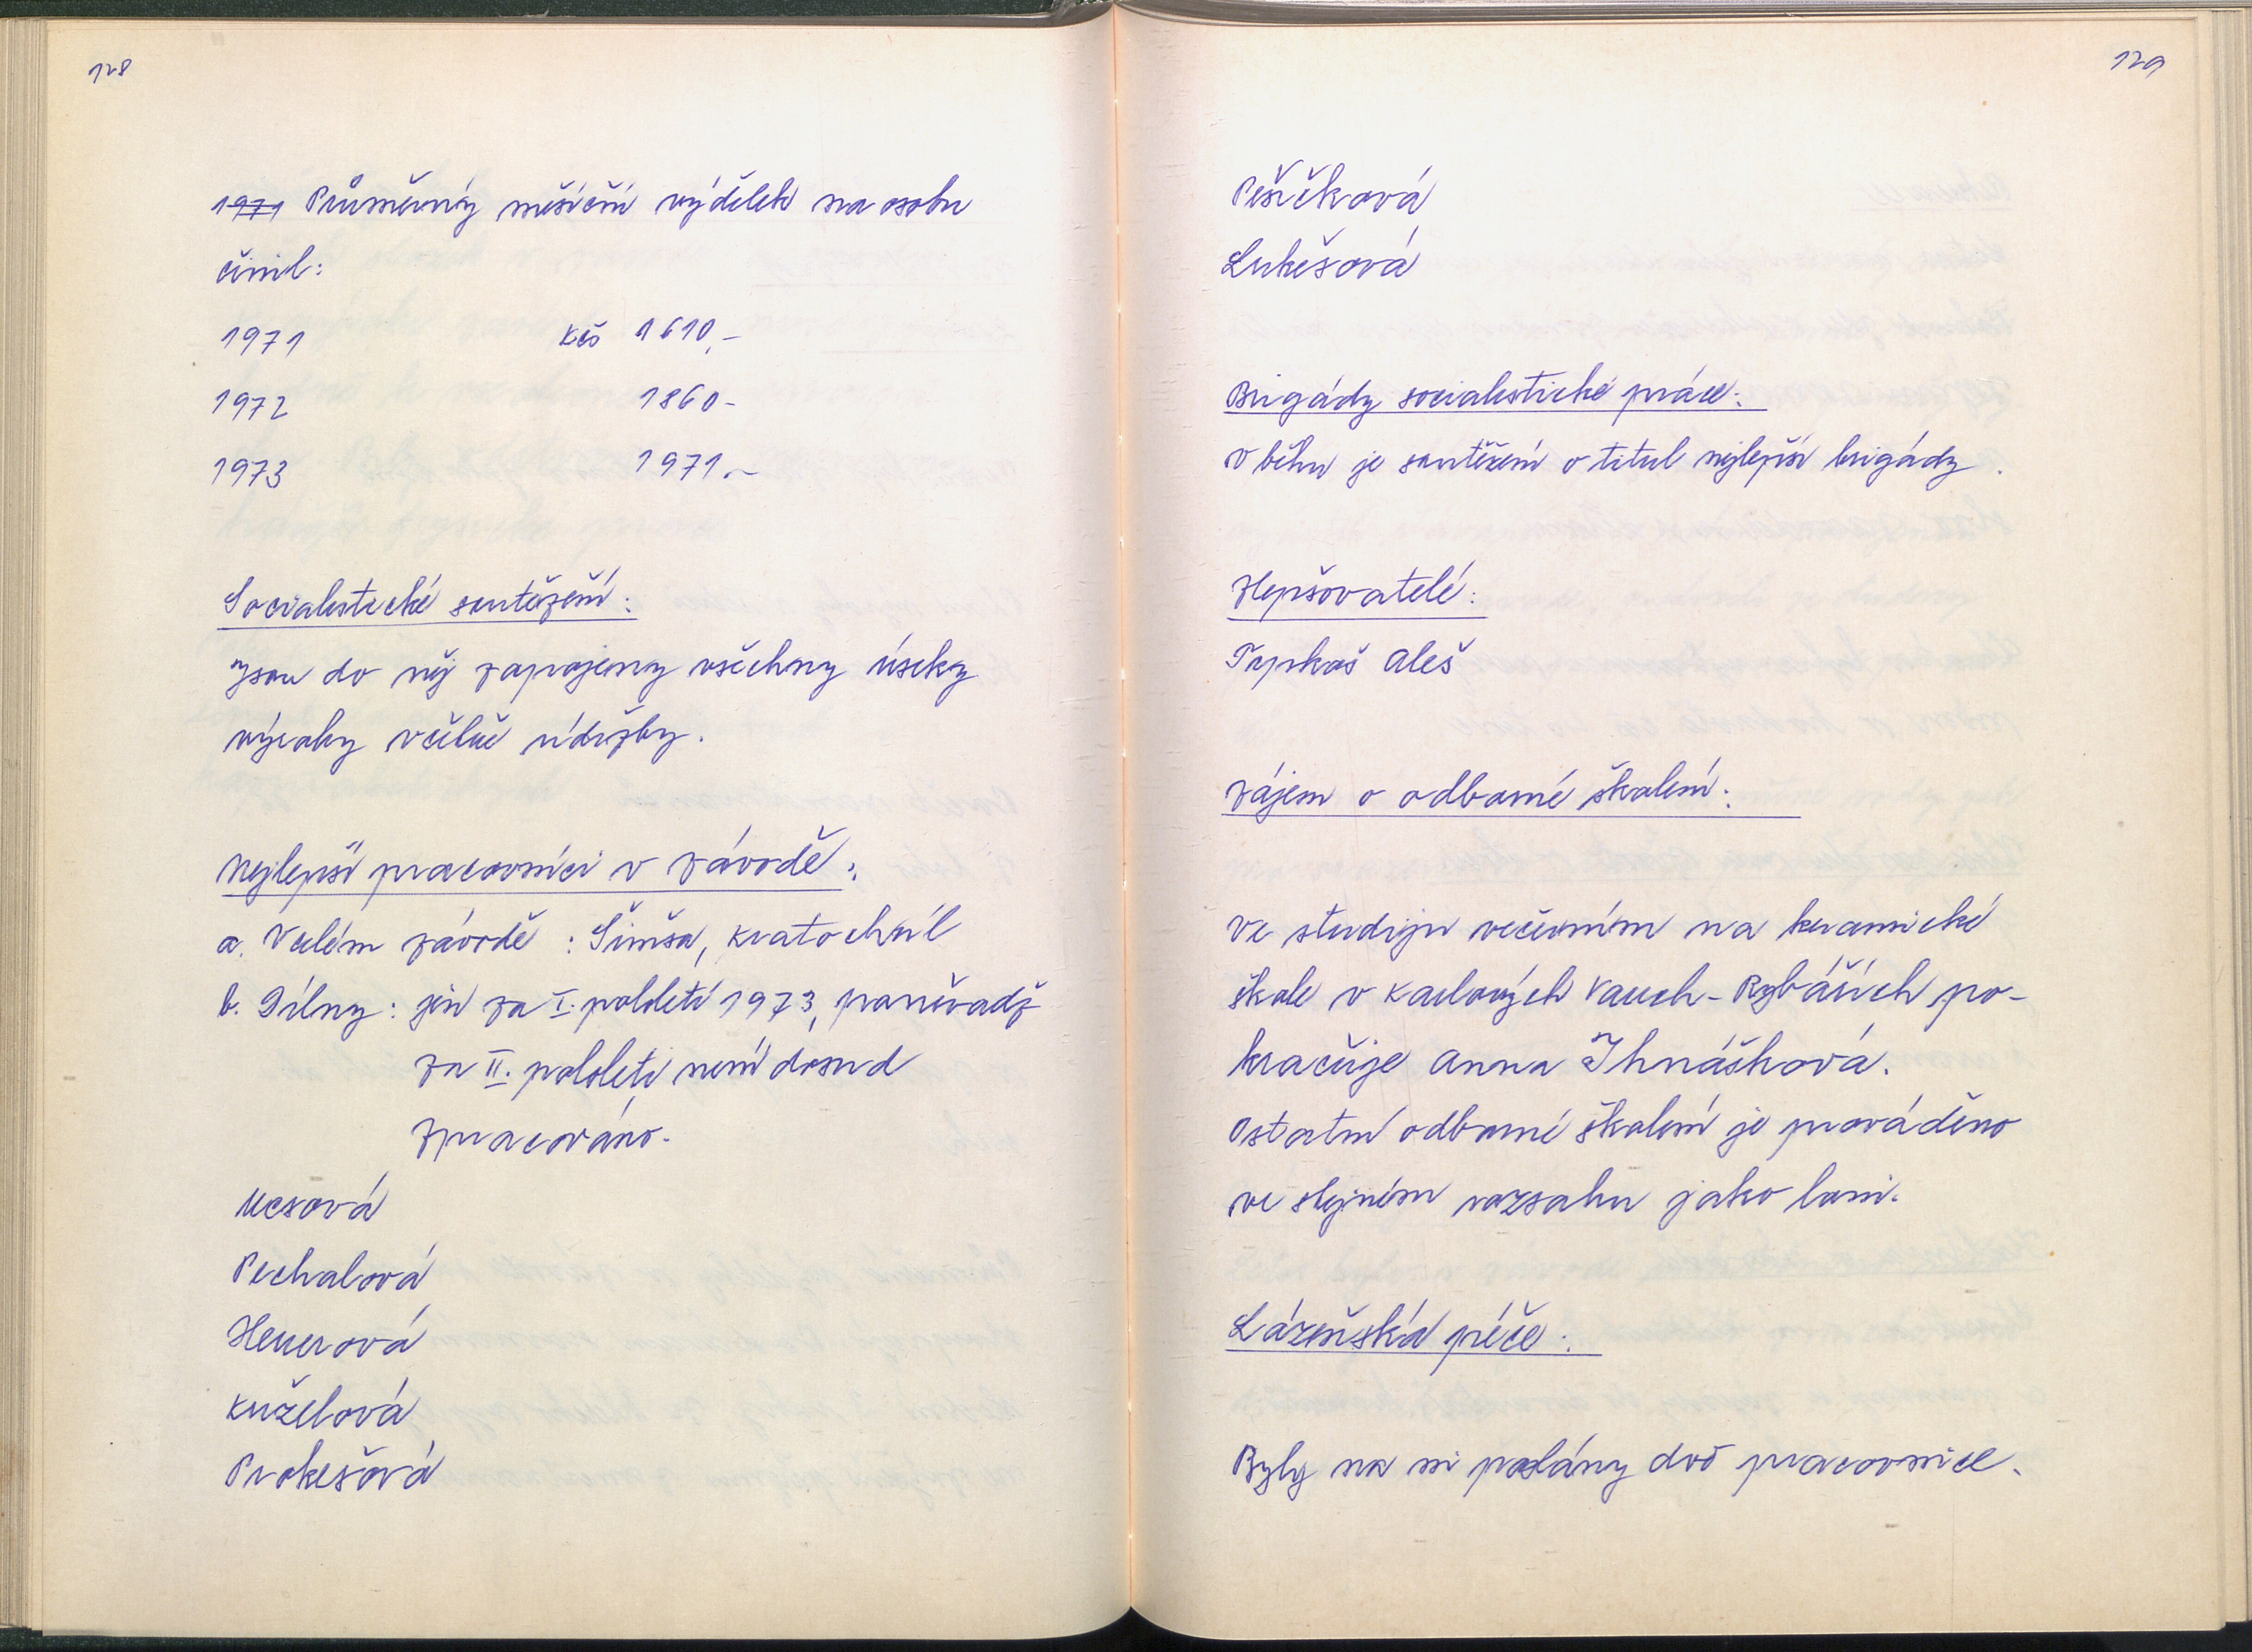 128
1971 Průměrný měsíční výdělek na osobu
činil:
1971 Kčs 1610,-
1972 1860-
1973 1971.-
Socialistické soutěžení:
Jsou do něj zapojeny všechny úseky
výroby včetně údržby.
Nejlepší pracovníci v závodě:
a. V celém závodě: Šimša, Kratochvíl
b. Dílny: jen za I. pololetí 1973, poněvadž
za II. pololetí není dosud
zpracováno.
Pechalová
Heuerová
Kuželová
Prokešová
129
Pešičková
Lukešová
Brigády socialistické práce:
v běhu je soutěžení o titul nejlepší brigády.
Zlepšovatelé:
Topkaš Aleš
Zájem o odborné školení:
Ve studiju večerním na keramické
škole v Karlových Varech-Rybářích po-
kračuje Anna Ihnášková.
Ostatní odborné školení je prováděno
ve stejném rozsahu jako loni.
Lázeňská péče:
Byly na ni poslány dvě pracovnice.